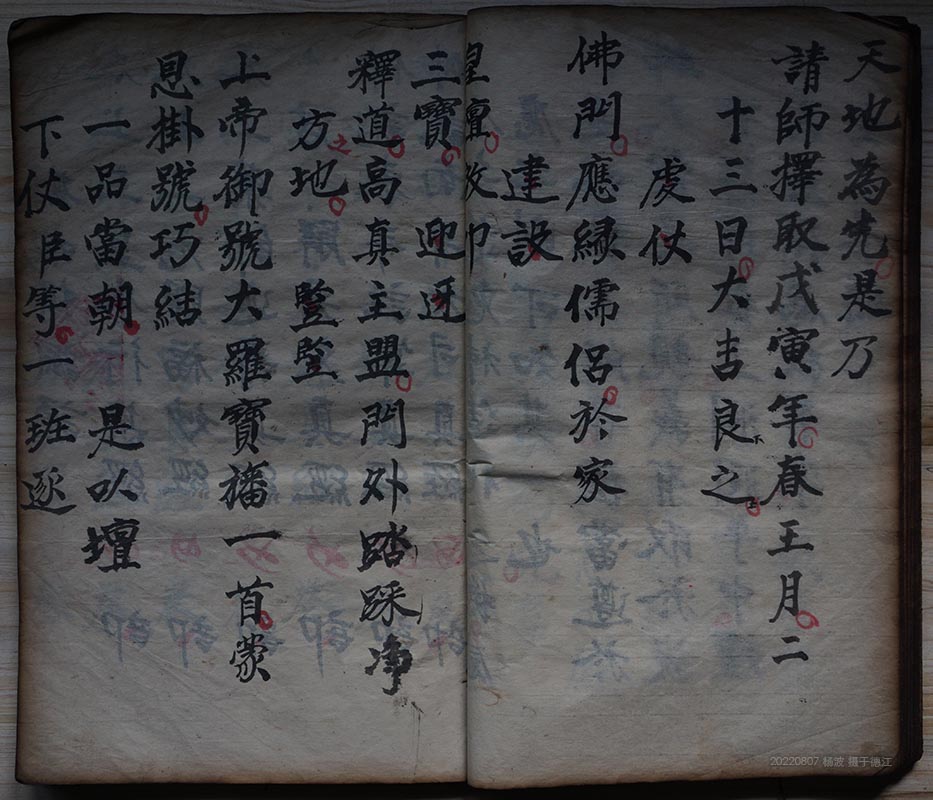 天地為先是乃
請師擇取戊寅年春王月二
十三日大吉良之下上
虔仗
佛門應緣儒侶於家
建設
皇壇啟巾
三寶迎迓
釋道高真主盟門外踏踩净
方之地竪竪
上帝御號大羅寶旛一首蒙
恩掛號巧結
一品當朝是以壇
下仗臣等一班逐
20220807 杨波 摄于德江